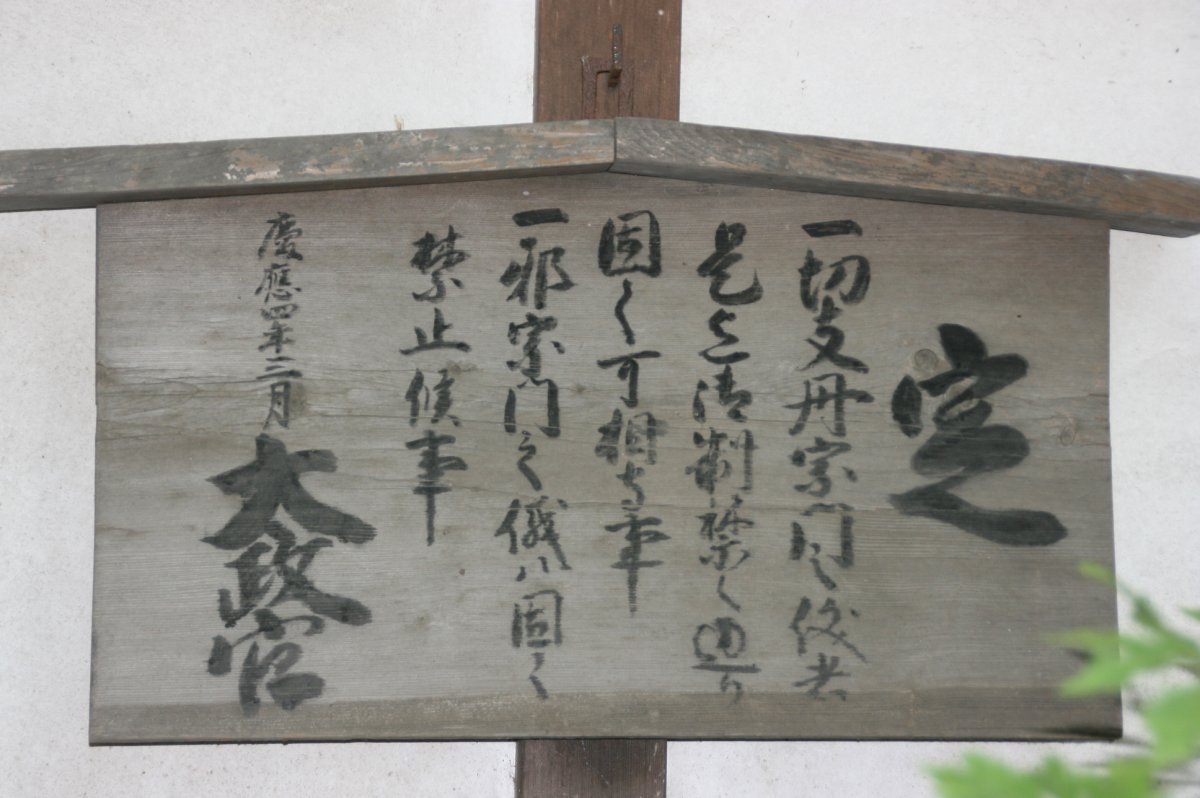 定
一切支丹宗門之儀者
是迄御制禁之通り
固く可相守事
一邪宗門之儀ハ固く
禁止候事
慶應四年三月 太政官